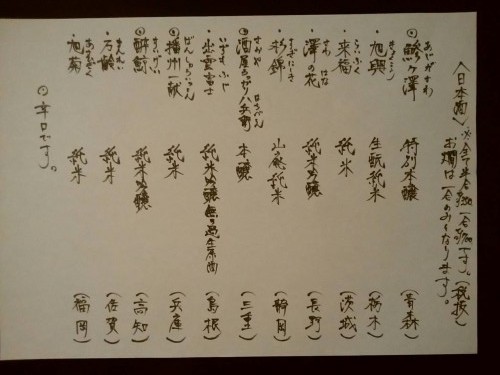 〈日本酒〉※全て半合 一合 です。(税抜)
お燗は一合のみとなります。
◎鯵ヶ澤 あじがさわ 特別本醸 (青森)
・旭興 きょくこう 生酛純米 (栃木)
・来福 らいふく 純米 (茨城)
・澤の花 さわ はな 純米吟醸 (長野)
・杉錦 すぎにしき 山廃純米 (静岡)
◎酒屋 八兵衛 さかや はちべえ 本醸 (三重)
・出雲富士 いずも ふじ 純米吟醸無ろ過生原酒 (島根)
◎播州一献 ばんしゅういっこん 純米 (兵庫)
◎酔鯨 すいげい 純米吟醸 (高知)
・万齢 まんれい 純米 (佐賀)
・旭菊 あさひぎく 純米 (福岡)
◎辛口です。